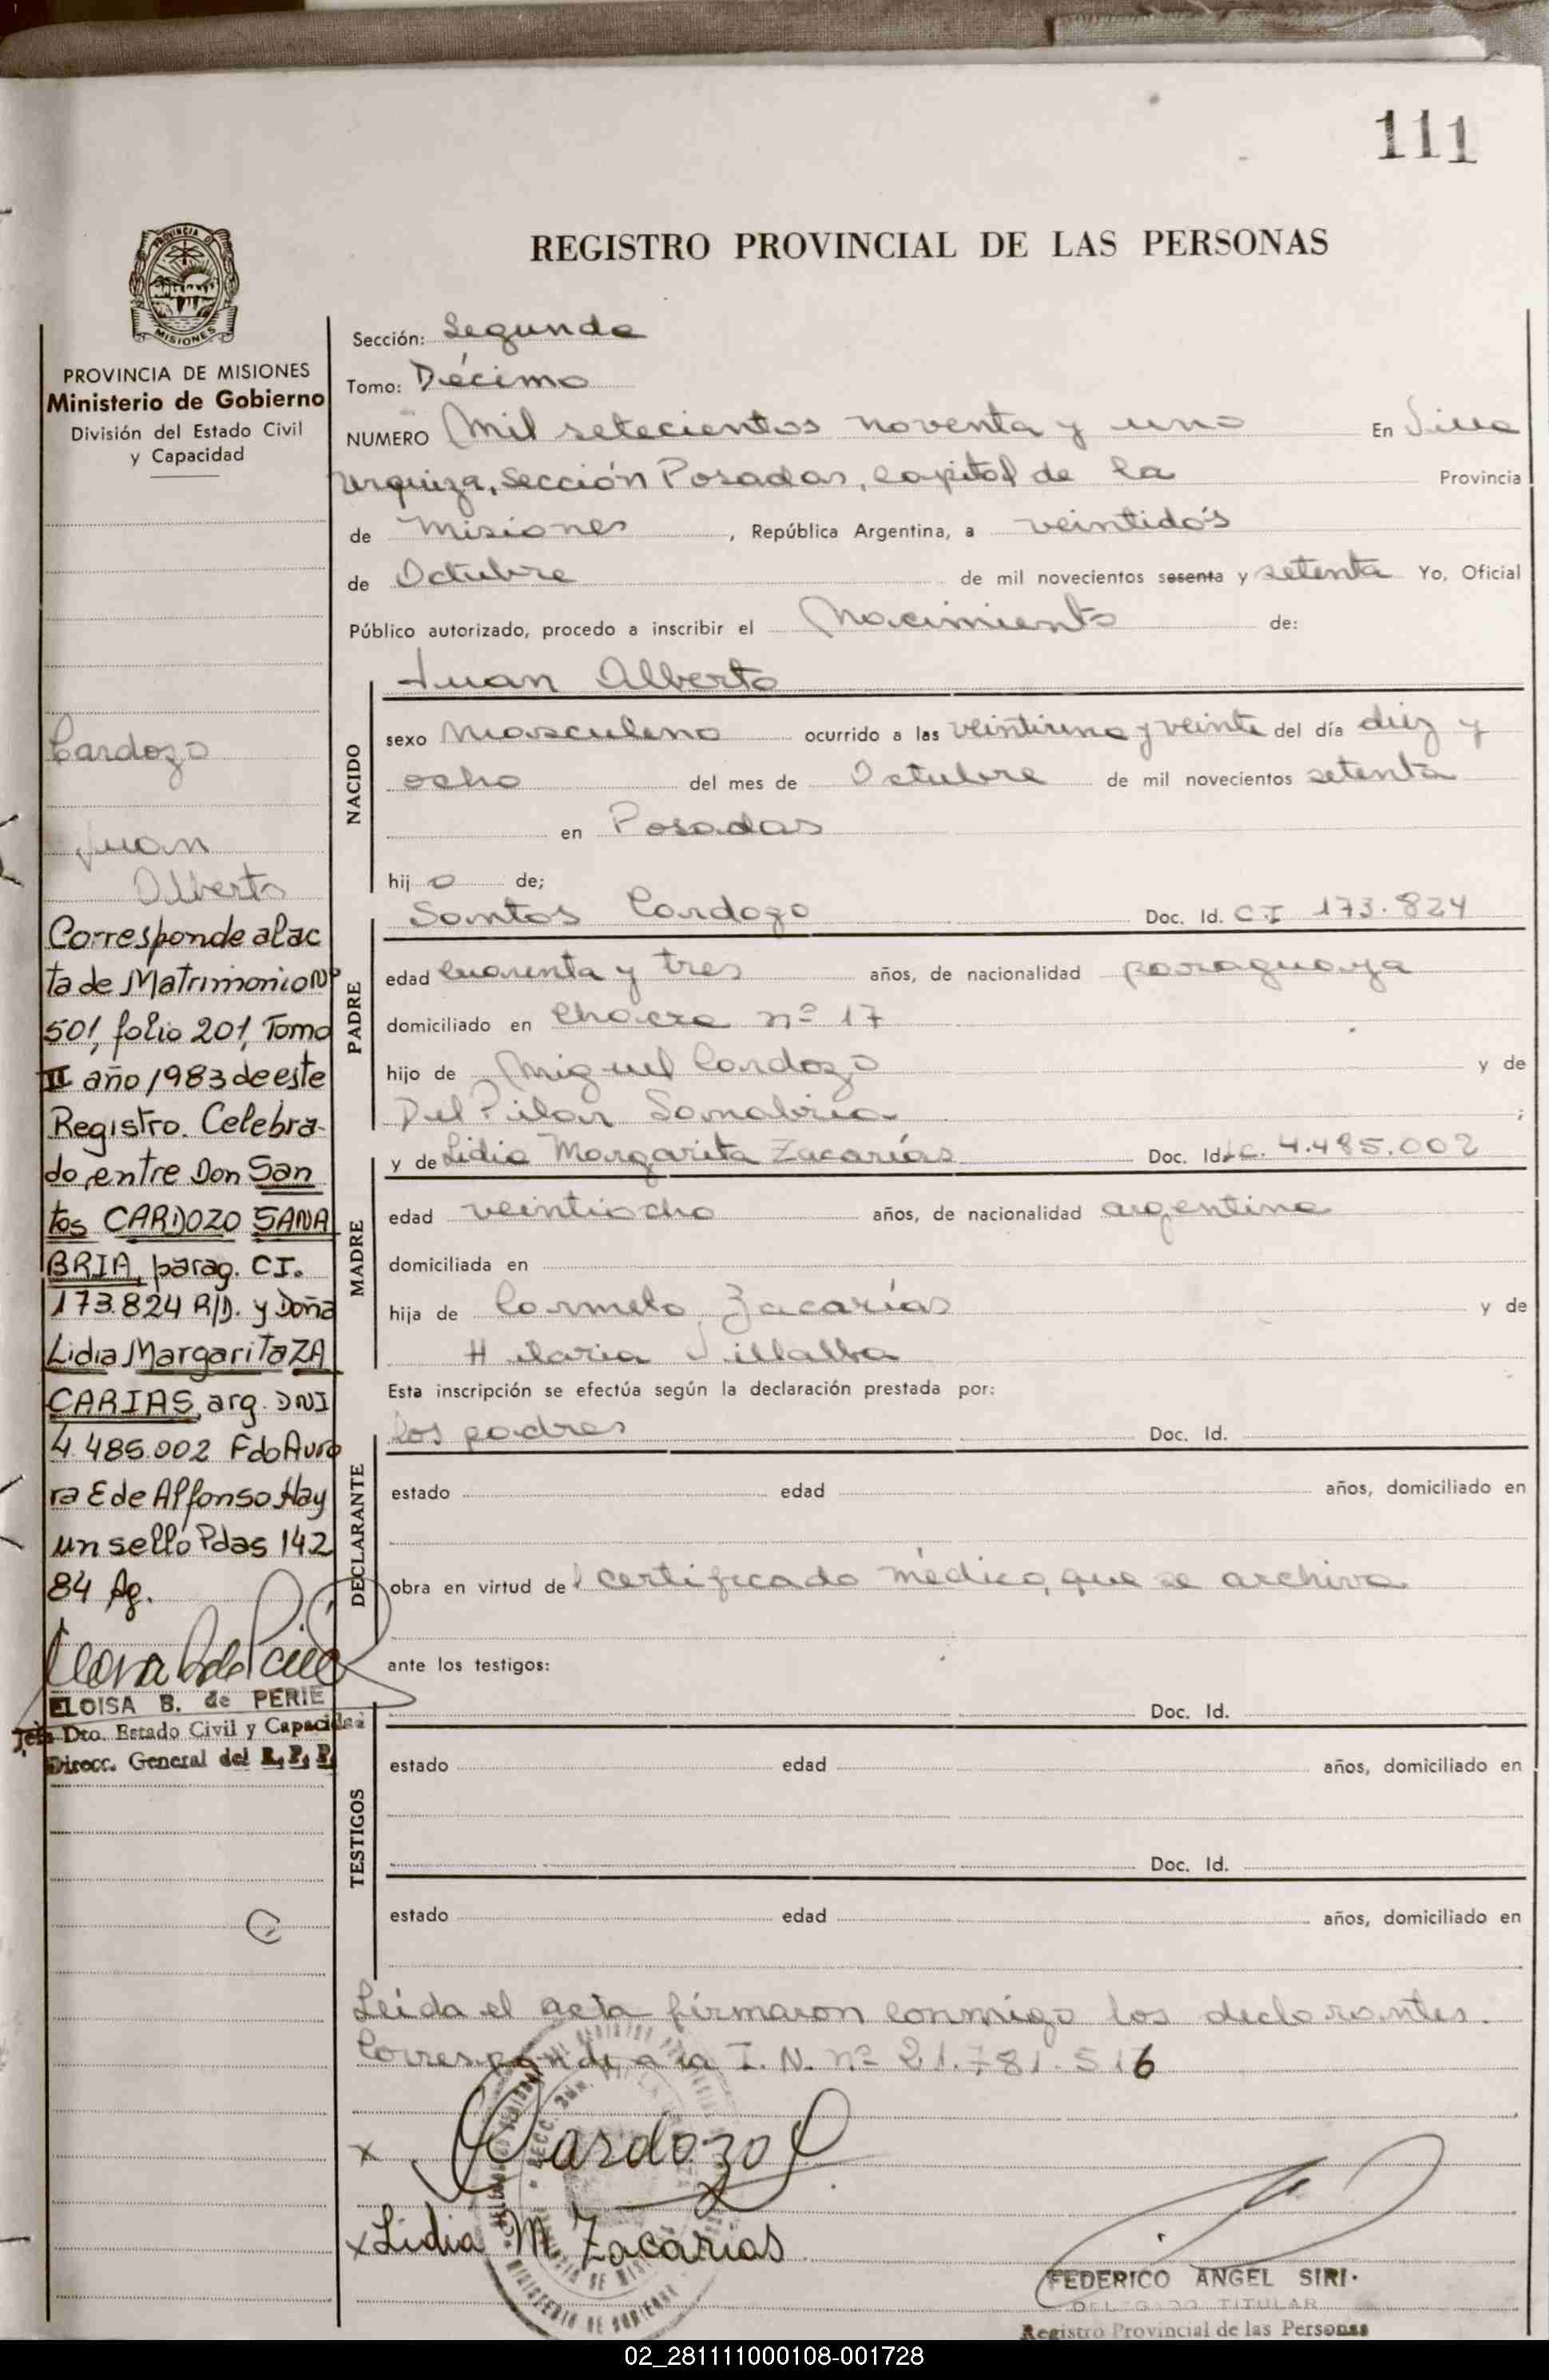 111
REGISTRO PROVINCIAL DE LAS PERSONAS
PROVINCIA DE MISIONES
Ministerio de Gobierno
División del Estado Civil
y Capacidad
Cardozo
Juan
Alberto
Corresponde al ac
ta de Matrimonio Nº
501, folio 201, Tomo
II año 1983 de este
Registro. Celebra-
do, entre Don San
tos CARDOZO SANA
BRIA, parag. CI.
173.824 R/D. y Doña
Lidia Margarita ZA
CARIAS, arg. DNI
4.485.002 Fdo Auro
ra E de Alfonso Hay
un sello Pdas 142
84 Ag.
ELOISA B. de PERIE
Jefe Dto. Estado Civil y Capacidad
Direcc. General del R. P. P.
Sección: Segunda
Tomo: Décimo
NUMERO Mil setecientos noventa y uno En Villa
Urquiza, Sección Posadas, capital de la Provincia
de Misiones, República Argentina, a veintidós
de Octubre de mil novecientos sesenta y setenta Yo, Oficial
Público autorizado, procedo a inscribir el Nacimiento de:
NACIDO
Juan Alberto
sexo masculino ocurrido a las veintiuna y veinte del día diez y
ocho del mes de Octubre de mil novecientos setenta
en Posadas
hijo de;
PADRE
Santos Cardozo Doc. Id. C.I 173.824
edad cuarenta y tres años, de nacionalidad paraguaya
domiciliado en Chacra nº 17
hijo de Miguel Cardozo y de
Del Pilar Sanabria ;
MADRE
y de Lidia Margarita Zacarías Doc. Id. L.C. 4.485.002
edad veintiocho años, de nacionalidad argentina
domiciliada en
hija de Carmelo Zacarías y de
Hilaria Villalba
Esta inscripción se efectúa según la declaración prestada por:
DECLARANTE
los padres Doc. Id.
estado edad años, domiciliado en
obra en virtud del certificado médico, que se archiva
ante los testigos:
TESTIGOS
Doc. Id.
estado edad años, domiciliado en
Doc. Id.
estado edad años, domiciliado en
Leída el acta firmaron conmigo los declarantes.
Corresponde a la I. N. nº 21.781.516
x Cardozo
x Lidia M. Zacarias
FEDERICO ANGEL SIRI
DELEGADO TITULAR
Registro Provincial de las Personas
02_281111000108-001728